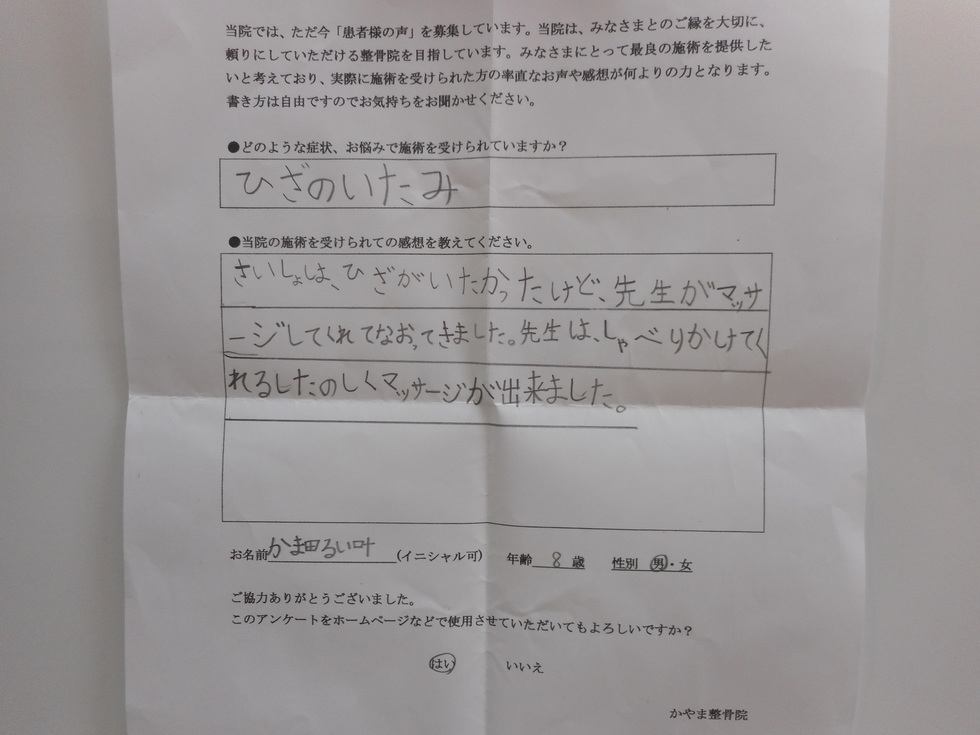 当院では、ただ今「患者様の声」を募集しています。当院は、みなさまとのご縁を大切に、
頼りにしていただける整骨院を目指しています。みなさまにとって最良の施術を提供した
いと考えており、実際に施術を受けられた方の率直なお声や感想が何よりの力となります。
書き方は自由ですのでお気持ちをお聞かせください。
●どのような症状、お悩みで施術を受けられていますか？
ひざのいたみ
●当院の施術を受けられての感想を教えてください。
さいしょは、ひざがいたかったけど、先生がマッサ
ージしてくれてなおってきました。先生は、しゃべりかけてく
れるしたのしくマッサージが出来ました。
お名前 かま田るい叶 (イニシャル可) 年齢 8 歳 性別 男・女
ご協力ありがとうございました。
このアンケートをホームページなどで使用させていただいてもよろしいですか？
はい いいえ
かやま整骨院